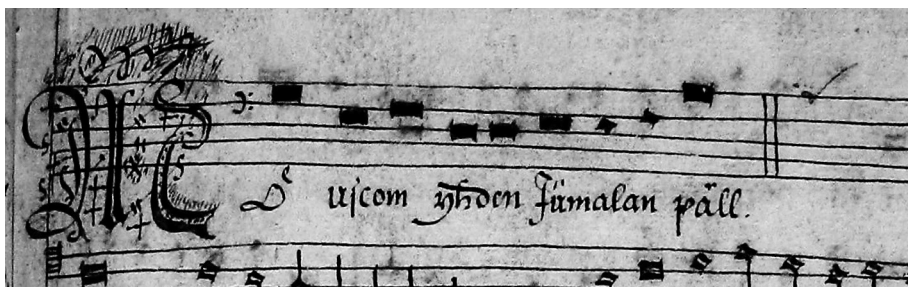 uſcom yhden Jümalan päll.